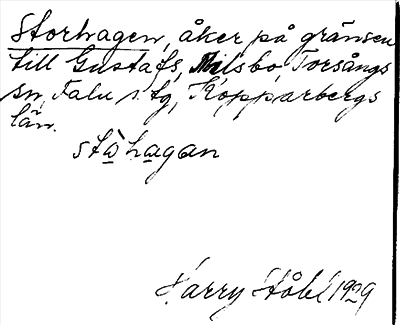 Storhagen, åker på gränsen
till Gustafs, Milsbo, Torsångs
sn, Falu s. tg, Kopparbergs
län.
stòhagan
Harry Ståhl 1929